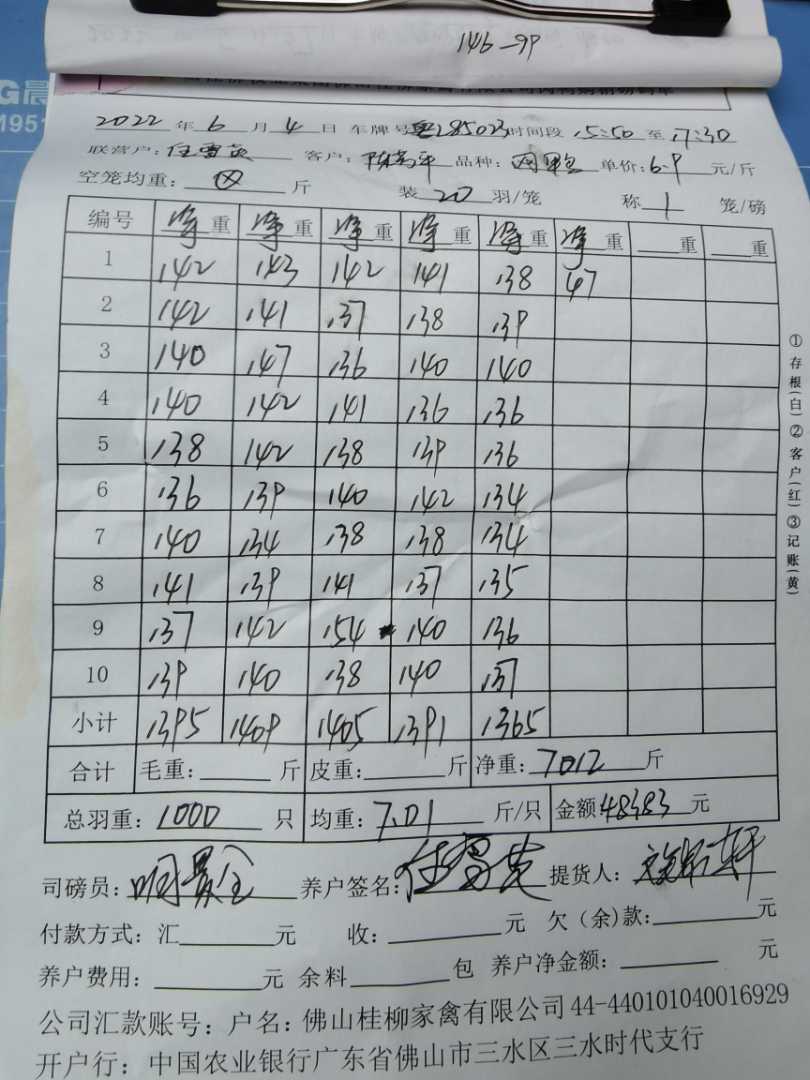 146-99
2022 年 6 月 4 日 车牌号 时间段 15:50 至 17:30
联营户: 任雪英 客户: 品种: 单价: 6.9 元/斤
空笼均重: 斤 装 20 羽/笼 称 1 笼/磅
编号 净重 净重 净重 净重 净重 净重 重 重
1 142 143 142 141 138 47
2 142 141 137 138 139
3 140 147 136 140 140
4 140 142 141 136 136
5 138 142 138 139 136
6 136 139 140 142 134
7 140 134 138 138 134
8 141 139 141 137 135
9 137 142 154 140 136
10 139 140 138 140 137
小计 1395 1409 1405 1391 1365
合计 毛重: 斤 皮重: 斤 净重: 7012 斤
总羽重: 1000 只 均重: 7.01 斤/只 金额 48383 元
司磅员: 养户签名: 任雪英 提货人:
付款方式: 汇 元 收: 元 欠(余)款: 元
养户费用: 元 余料 包 养户净金额: 元
公司汇款账号: 户名: 佛山桂柳家禽有限公司 44-440101040016929
开户行: 中国农业银行广东省佛山市三水区三水时代支行
①存根(白)②客户(红)③记账(黄)
G晨
1951